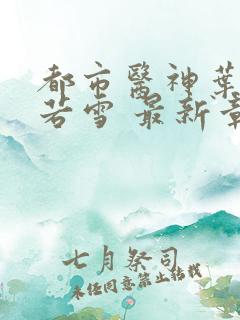 都市醫神葉
若雪 最新章
七月祭司
未经同意禁止转载